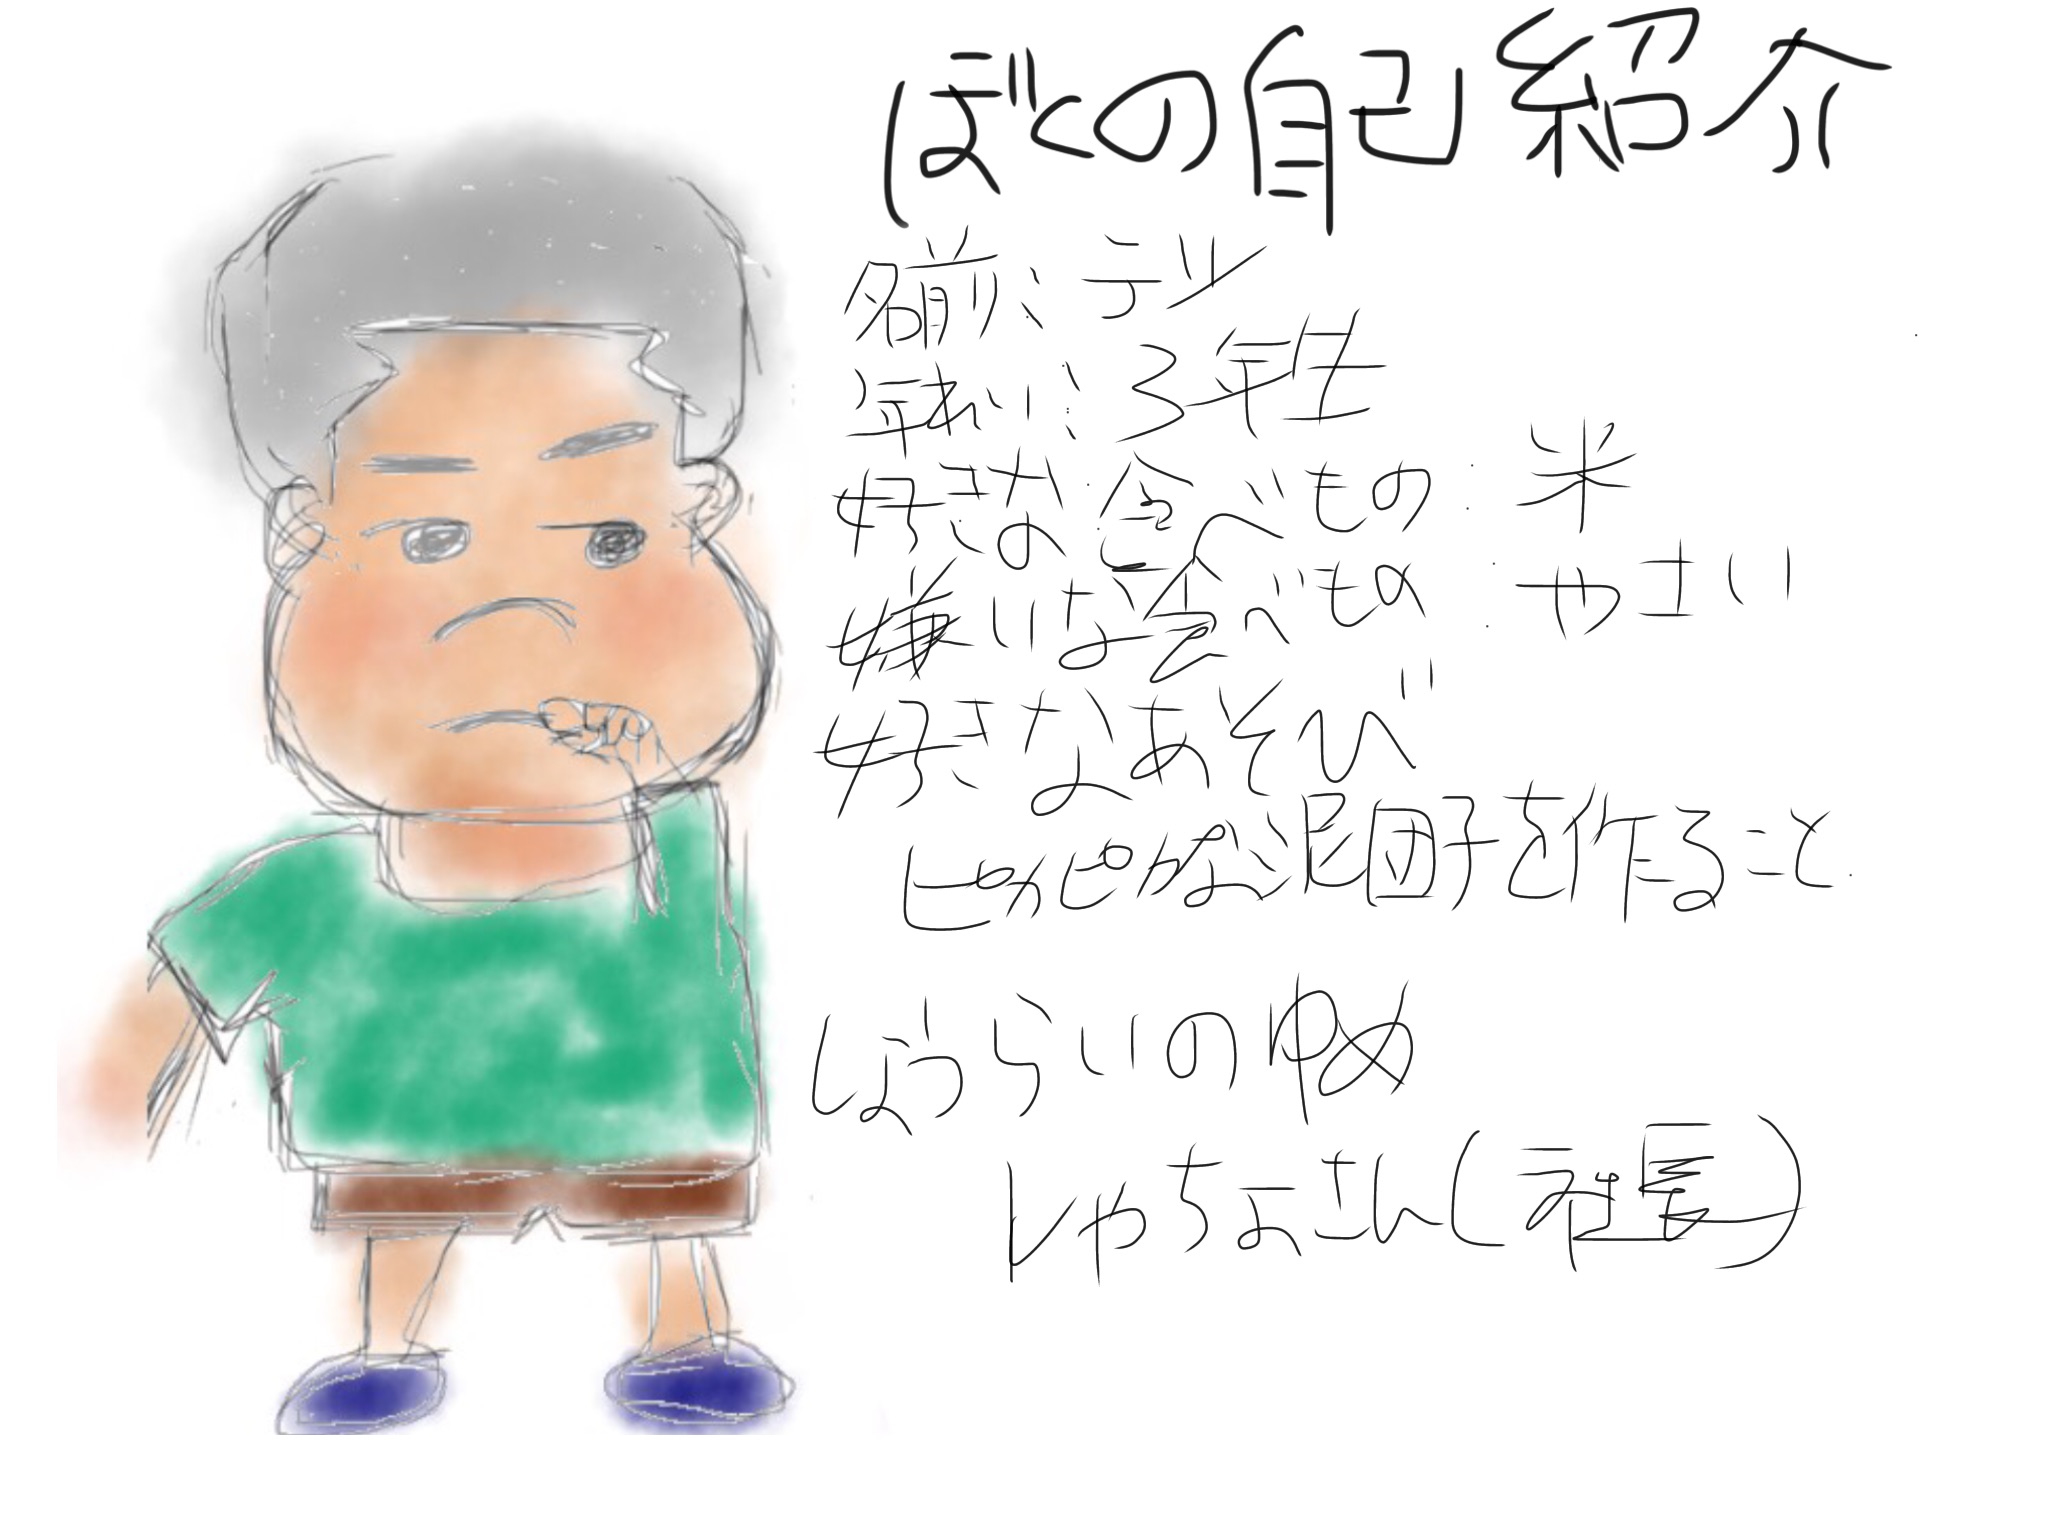 ぼくの自己紹介
名前:テツ
年れい:3年生
好きな食べもの:米
嫌いな食べもの:やさい
好きなあそび
ピカピカな泥団子を作ること
しょうらいのゆめ
しゃちょさん(社長)